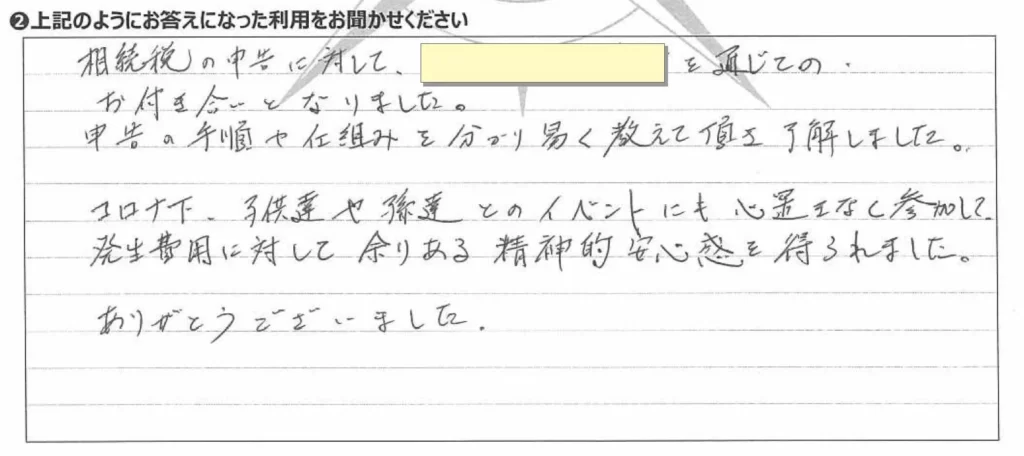 ❷上記のようにお答えになった利用をお聞かせください
相続税の申告に対して、 を通じての
お付き合いとなりました。
申告の手順や仕組みを分かり易く教えて頂き了解しました。
コロナ下、子供達や孫達とのイベントにも心置きなく参加して、
発生費用に対して余りある精神的安心感を得られました。
ありがとうございました.